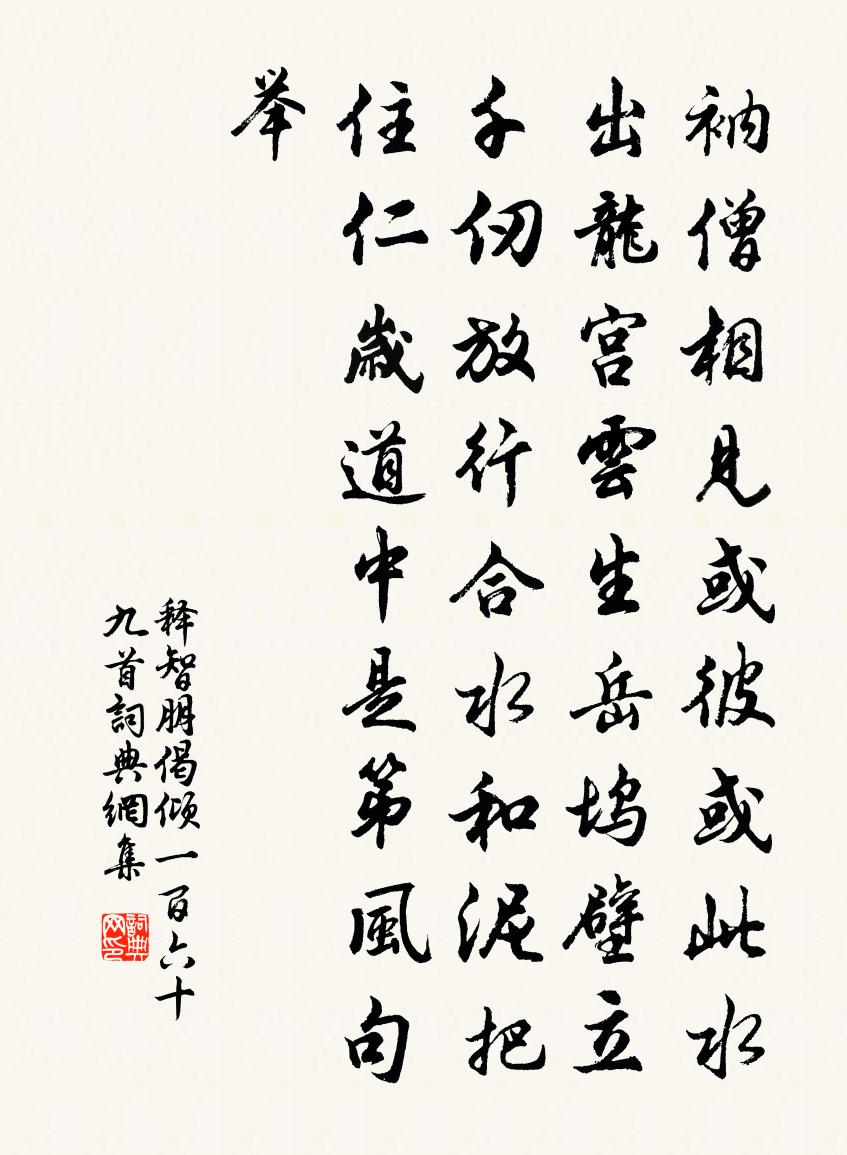 衲僧相見或彼或此水
出龍宮雲生岳塢壁立
千仞放行合水和泥把
住仁歲道中是第風句
举
释智朋偈倾一百六十
九首詞典網集
詞典网印